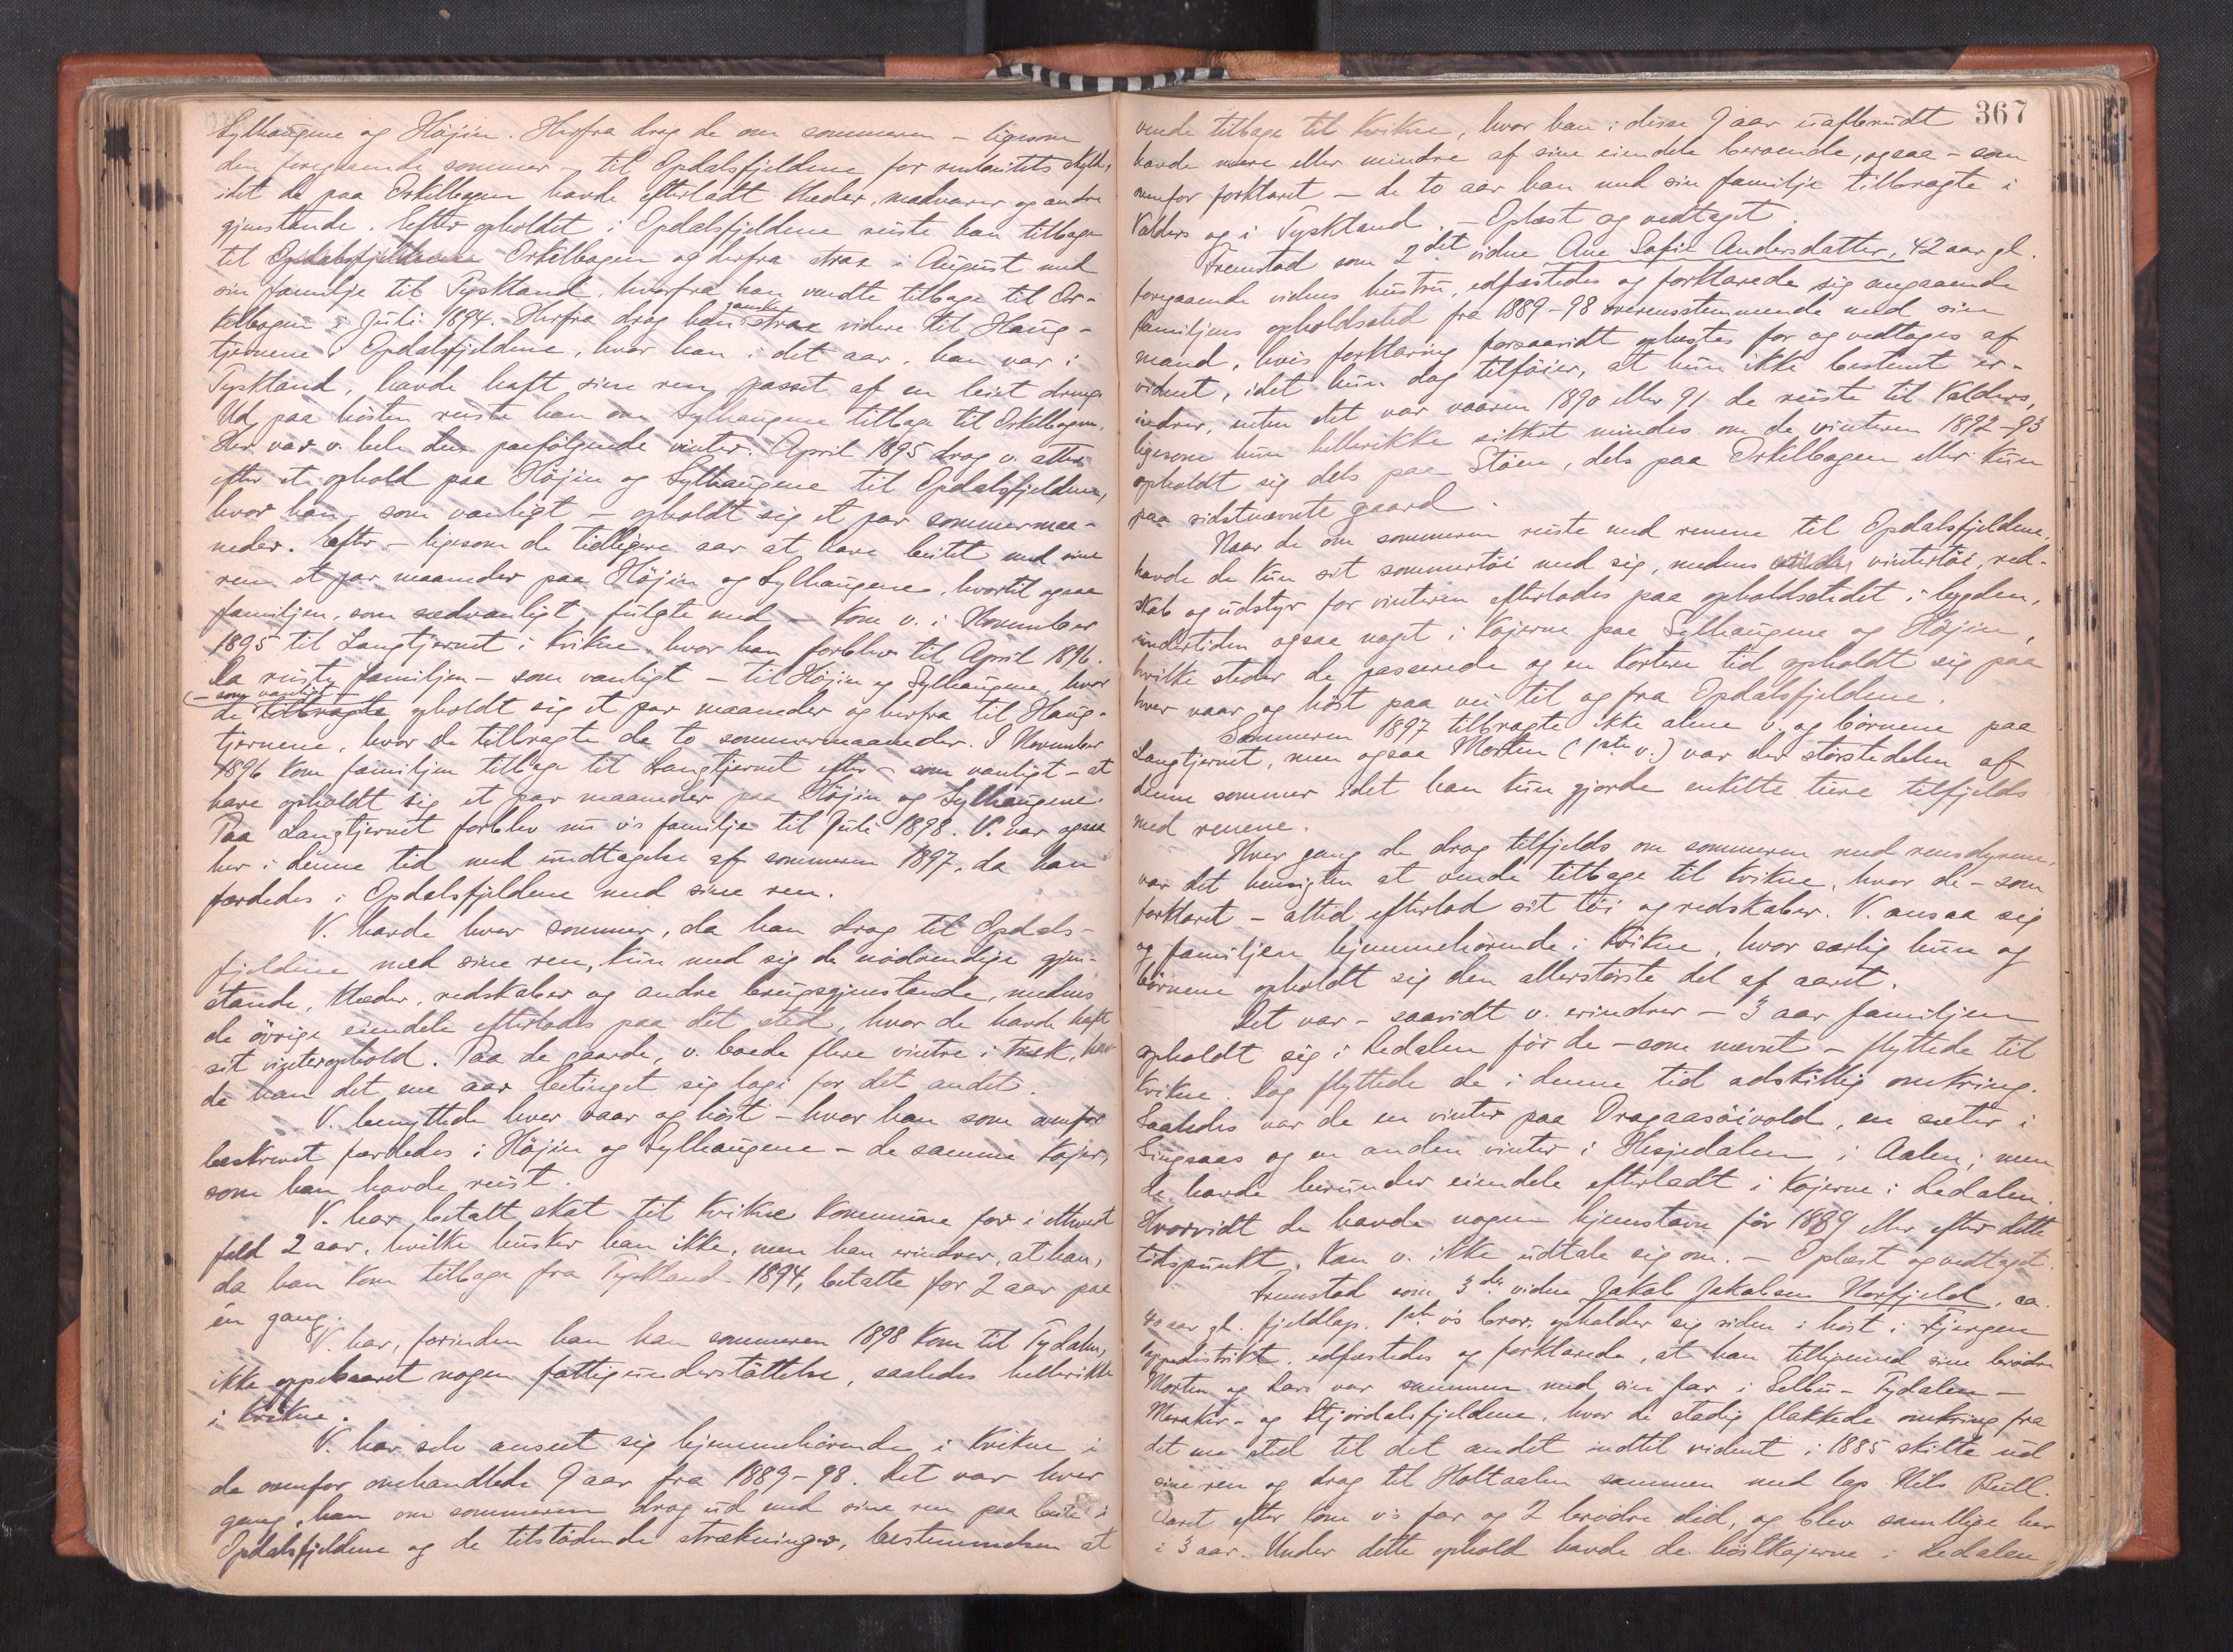 Sylhaugene og Højin. Herfra drog de om sommeren – ligesom
den foregaaende sommer – til Opdalsfjeldene for renbeitets skyld,
idet de paa Orkelbogen havde efterladt klæder, madvarer og andre
gjenstande. Efter opholdet i Opdalsfjeldene reiste han tilbage
til Opdalsfjeldene Orkelbogen og derfra strax i August med
sin familje til Tyskland, hvorfra han vendte tilbage til Or-
kelbogen i Juli 1894. Herfra drog han ganske strax videre til Haug-
tjernene i Opdalsfjeldene, hvor han i det aar, han var i
Tyskland, havde haft sine ren passet af en leiet dreng.
Ud paa høsten reiste han om Sylhaugene tilbage til Orkelbogen.
Der var v. hele den paafølgende vinter. April 1895 drog v. atter
efter et ophold paa Højin og Sylhaugene til Opdalsfjeldene,
hvor han – som vanligt – opholdt sig et par sommermaa-
neder. Efter – ligesom de tidligere aar at have beitet med sine
ren et par maaneder paa Højin og Sylhaugene, hvortil ogsaa
familjen, som sædvanligt fulgte med – kom v. i November
1895 til Langtjernet i Kvikne, hvor han forblev til April 1896.
Da reiste familjen – som vanligt – til Højin og Sylhaugene, hvor
– som vanligt –
de tilbragte opholdt sig et par maaneder og herfra til Haug-
tjernene, hvor de tilbragte de to sommermaaneder. I November
1896 kom familjen tilbage til Langtjernet efter – som vanligt – at
have opholdt sig et par maaneder paa Højin og Sylhaugene.
Paa Langtjernet forblev nu v's familje til Juli 1898. V. var ogsaa
her i denne tid med undtagelse af sommeren 1897, da han
færdedes i Opdalsfjeldene med sine ren.
V. havde hver sommer, da han drog til Opdals-
fjeldene med sine ren, kun med sig de nødvendige gjen-
stande, klæder, redskaber og andre brugsgjenstande, medens
de øvrige eiendele efterlodes paa det sted, hvor de havde haft
sit vinterophold. Paa de gaarde, v. boede flere vintre i træk, hav-
de han det ene aar betinget sig logi for det andet.
V. benyttede hver vaar og høst – hvor han som ovenfor
beskrevet færdedes i Højin og Sylhaugene – de samme kojer,
som han havde reist.
V. har betalt skat til Kvikne kommune for i ethvert
fald 2 aar, hvilke husker han ikke, men han erindrer, at han,
da han kom tilbage fra Tyskland 1894, betalte for 2 aar paa
én gang.
V. har, forinden han han sommeren 1898 kom til Tydalen,
ikke oppebaaret nogen fattigunderstøttelse, saaledes hellerikke
i Kvikne.
V. har selv anseet sig hjemmehørende i Kvikne i
de ovenfor omhandlede 9 aar fra 1889-98. Det var hver
gang, han om sommeren drog ud med sine ren paa beite i
Opdalsfjeldene og de tilstødende strækninger, bestemmelsen at
367
vende tilbage til Kvikne, hvor han i disse 9 aar uafbrudt
havde mere eller mindre af sine eiendele beroende, ogsaa – som
ovenfor forklaret – de to aar han med sin familje tilbragte i
Valders og i Tyskland. – Oplæst og vedtaget.
Fremstod som 2det vidne Ane Sofie Andersdatter, 42 aar gl.
foregaaende vidnes hustru, edfæstedes og forklarede sig angaaende
familjens opholdssted fra 1889-98 overensstemmende med sin
mand, hvis forklaring forsaavidt oplæstes for og vedtoges af
vidnet, idet hun dog tilføier, at hun ikke bestemt er-
indrer, enten det var vaaren 1890 eller 91 de reiste til Valders,
ligesom hun hellerikke sikkert mindes om de vinteren 1892-93
opholdt sig dels paa Støen, dels paa Orkelbogen eller kun
paa sidstnævnte gaard.
Naar de om sommeren reiste med renene til Opdalsfjeldene,
havde de kun sit sommertøi med sig, medens vintertøi, red-
skab og udstyr for vinteren efterlodes paa opholdsstedet i bygden,
undertiden ogsaa noget i kojerne paa Sylhaugene og Højin,
hvilke steder de passerede og en kortere tid opholdt sig paa
hver vaar og høst paa vei til og fra Opdalsfjeldene.
Sommeren 1897 tilbragte ikke alene v. og børnene paa
Langtjernet, men ogsaa Morten (1ste v.) var der størstedelen af
denne sommer idet han kun gjorde enkelte turer tilfjelds
med renene.
Hver gang de drog tilfjelds om sommeren med rensdyrene,
var det hensigten at vende tilbage til Kvikne, hvor de – som
forklaret – altid efterlod sit tøi og redskaber. V. ansaa sig
og familjen hjemmehørende i Kvikne, hvor særlig hun og
børnene opholdt sig den allerstørste del af aaret.
Det var – saavidt v. erindrer – 3 aar familjen
opholdt sig i Ledalen før de – som nævnt – flyttede til
Kvikne. Dog flyttede de i denne tid adskillig omkring.
Saaledes var de en vinter paa Dragaasøivold, en sæter i
Singsaas og en anden vinter i Hesjedalen i Aalen; men
de havde herunder eiendele efterladt i kojerne i Ledalen.
Hvorvidt de havde nogen hjemstavn før 1889 eller efter dette
tidspunkt, kan v. ikke udtale sig om. – Oplæst og vedtaget.
Fremstod som 3de vidne Jakob Jakobsen Norfjeld, ca.
40 aar gl. fjeldlap. 1ste v's bror, opholder sig siden i høst i Fjergen
lappedistrikt, edfæstedes og forklarede, at han tilligemed sine brødre
Morten og Lars var sammen med sin far i Selbu- Tydalen-
Meraker- og Stjørdalsfjeldene, hvor de stadig flakkede omkring fra
det ene sted til det andet indtil vidnet i 1885 skilte ud
sine ren og drog til Holtaalen sammen med lap Nils Bull.
Aaret efter kom v's far og 2 brødre did, og blev samtlige her
i 3 aar. Under dette ophold havde de høstkojerne i Ledalen